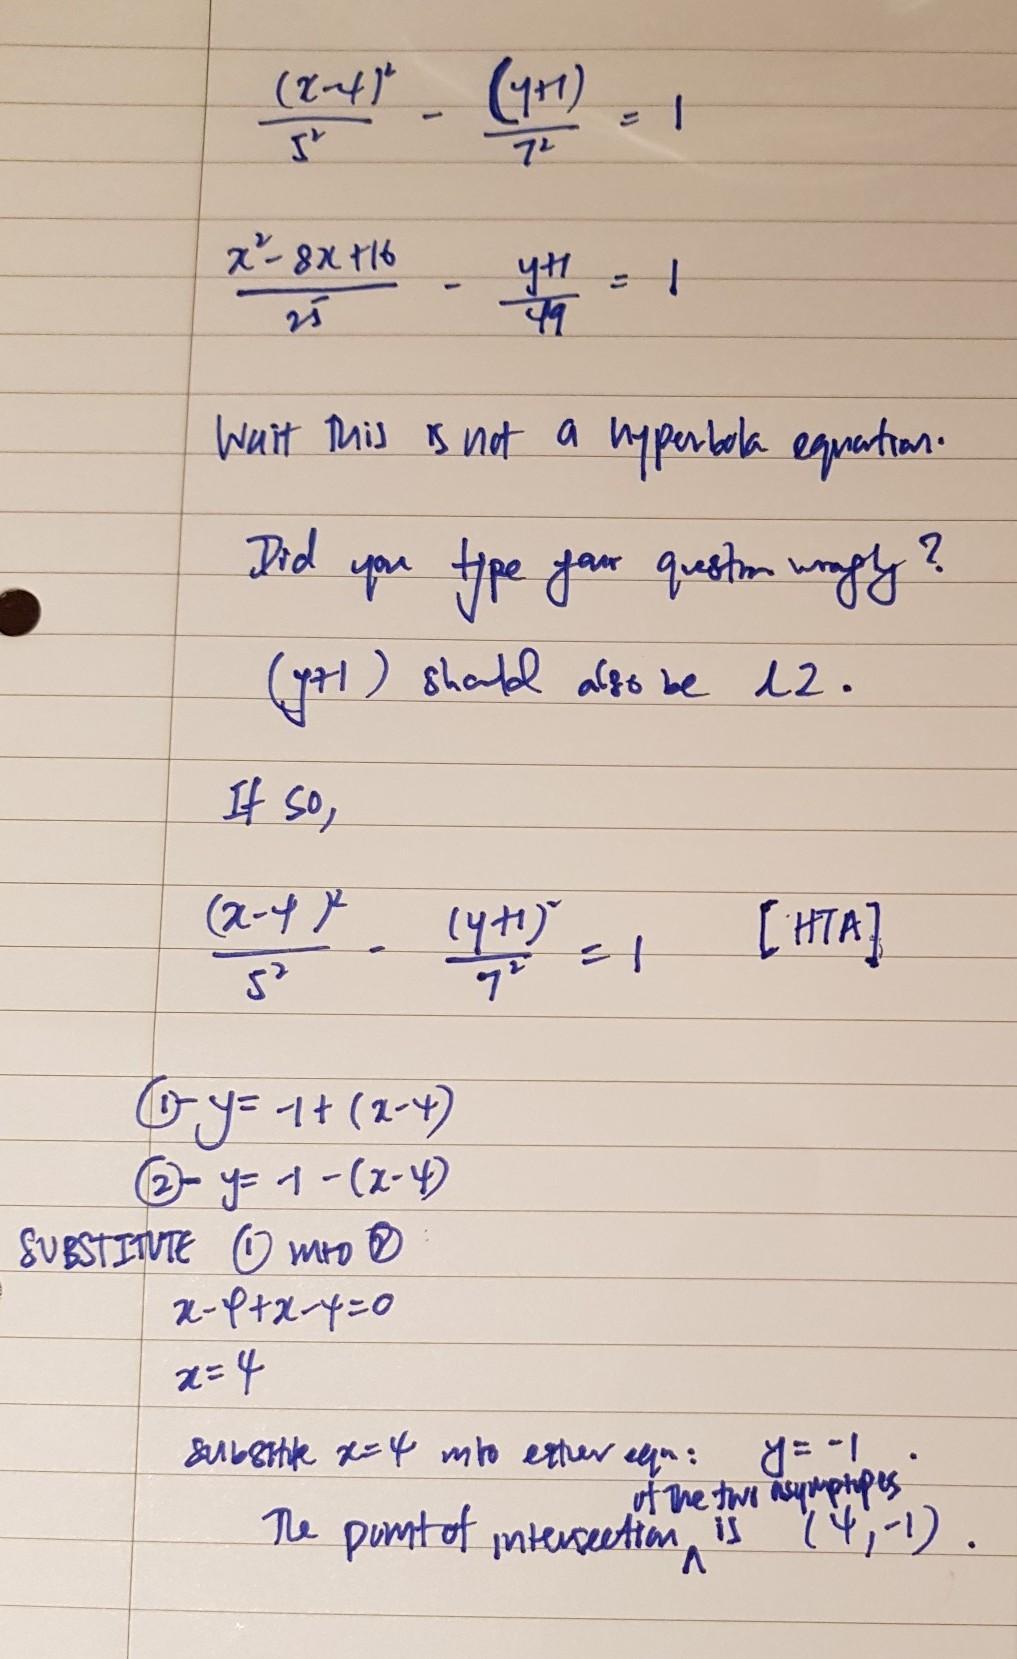 (x-4)² / 5² - (y+1) / 7² = 1
x²-8x+16 / 25 - y+1 / 49 = 1
Wait this is not a hyperbola equation.
Did you type your question wrongly?
(y+1) should also be 12.
If so,
(x-4)² / 5² - (y+1)² / 7² = 1 [HTA]
①- y= -1+(x-4)
②- y= -1-(x-4)
SUBSTITUTE ① into ②
x-4+x-4=0
x=4
substitute x=4 into either eqn: y=-1.
of the two asymptopes
The point of intersection ^ is (4,-1).